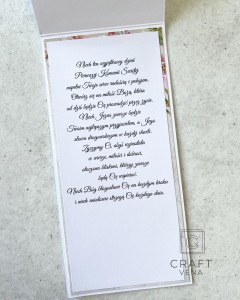 Niech ten wyjątkowy dzień
Pierwszej Komunii Świętej
napełni Twoje serce radością i pokojem.
Otwórz się na miłość Bożą, która
od dziś będzie Cię prowadzić przez życie.
Niech Jezus zawsze będzie
Twoim najlepszym przyjacielem, a Jego
słowa drogowskazem w każdej chwili.
Życzymy Ci, abyś wzrastała
w wierze, miłości i dobroci,
otoczona bliskimi, którzy zawsze
będą Cię wspierać.
Niech Bóg błogosławi Cię na każdym kroku
i niech aniołowie strzegą Cię każdego dnia.
CRAFT
VENA